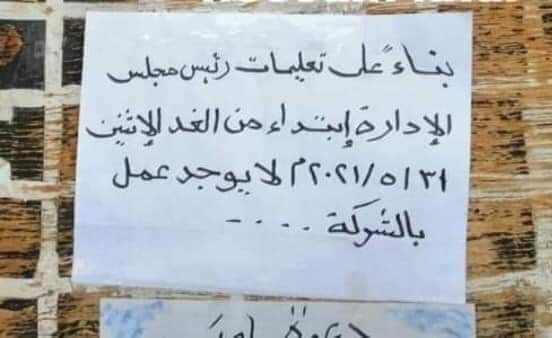 بناءً على تعليمات رئيس مجلس
الإدارة إبتداء من الغد الإثنين
٢٠٢١/٥/٣١م لا يوجد عمل
بالشركة . . . . -